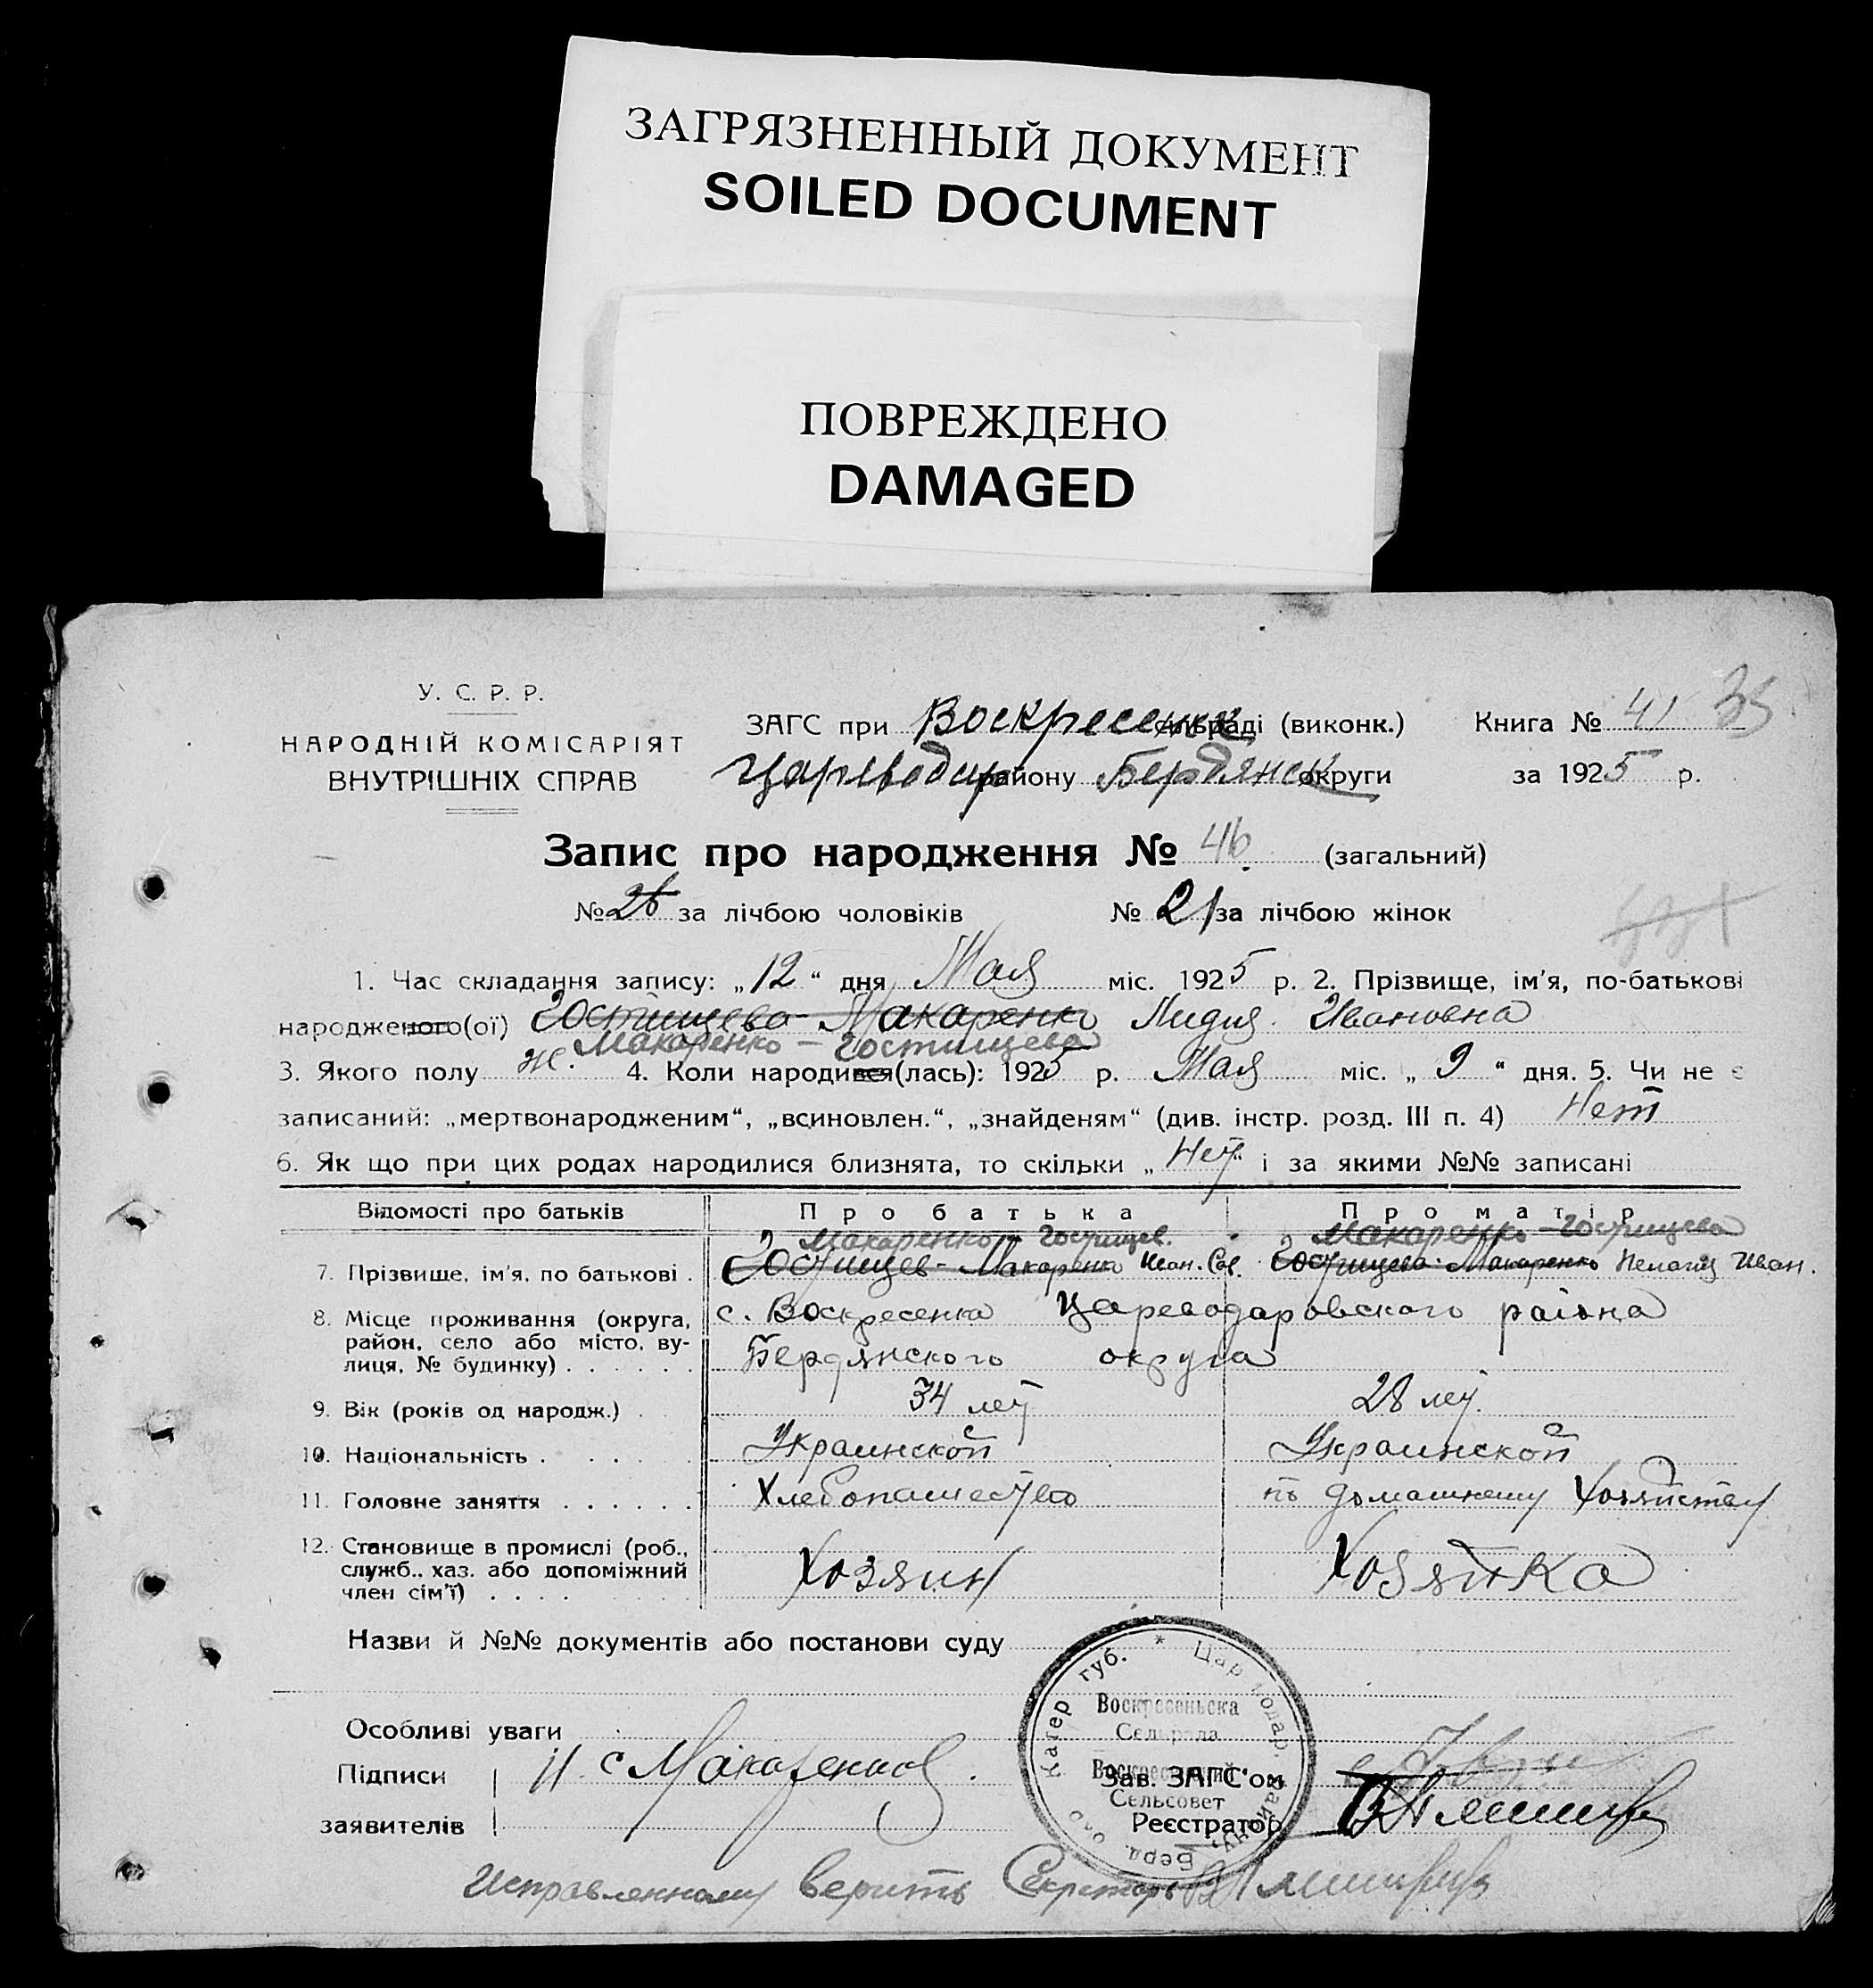 ЗАГРЯЗНЕННЫЙ ДОКУМЕНТ
SOILED DOCUMENT
ПОВРЕЖДЕНО
DAMAGED
У. С. Р. Р.
НАРОДНІЙ КОМІСАРІЯТ
ВНУТРІШНІХ СПРАВ
ЗАГС при Воскресенск сільраді (виконк.) Книга № 41 35
Цареводар району Бердянск округи за 1925 р.
Запис про народження № 46 (загальний)
№ 26 за лічбою чоловіків № 21 за лічбою жінок
1. Час складання запису: „12“ дня Мая міс. 1925 р. 2. Прізвище, ім'я, по-батькові
народженого(ої) Гостищева-Макаренко Лидия Ивановна
Макаренко – Гостищева
3. Якого полу ж. 4. Коли народився(лась): 1925 р. Мая міс. „9“ дня. 5. Чи не є
записаний: „мертвонародженим“, „всиновлен.“, „знайденям“ (див. інстр. розд. III п. 4) Нет
6. Як що при цих родах народилися близнята, то скільки „Нет“ і за якими №№ записані
Відомості про батьків Про батька Про матір
Макаренко – Гостищев. Макаренко – Гостищева
7. Прізвище, ім'я, по батькові . Гостищев-Макаренко Иван. Сав. Гостищева-Макаренко Пелагия Иван.
8. Місце проживання (округа, с. Воскресенка Цареводаровского района
район, село або місто, ву-
лиця, № будинку) . . . . . . Бердянского округа
9. Вік (років од народж.) . 34 лет 28 лет.
10. Національність . . . . . Украинской Украинской
11. Головне заняття . . . . . . Хлебопашество по домашнему хозяйству
12. Становище в промислі (роб.,
служб., хаз. або допоміжний Хозяин Хозяйка
член сім'ї) . . . .
Назви й №№ документів або постанови суду
Особливі уваги
Підписи И. С Макаренко
заявителів
Зав. ЗАГС'ом
Реєстратор
Катер губ. * Цар
Воскресеньска
Сельрада
Воскресенский
Сельсовет
Берд.
Исправленному верить Секретарь